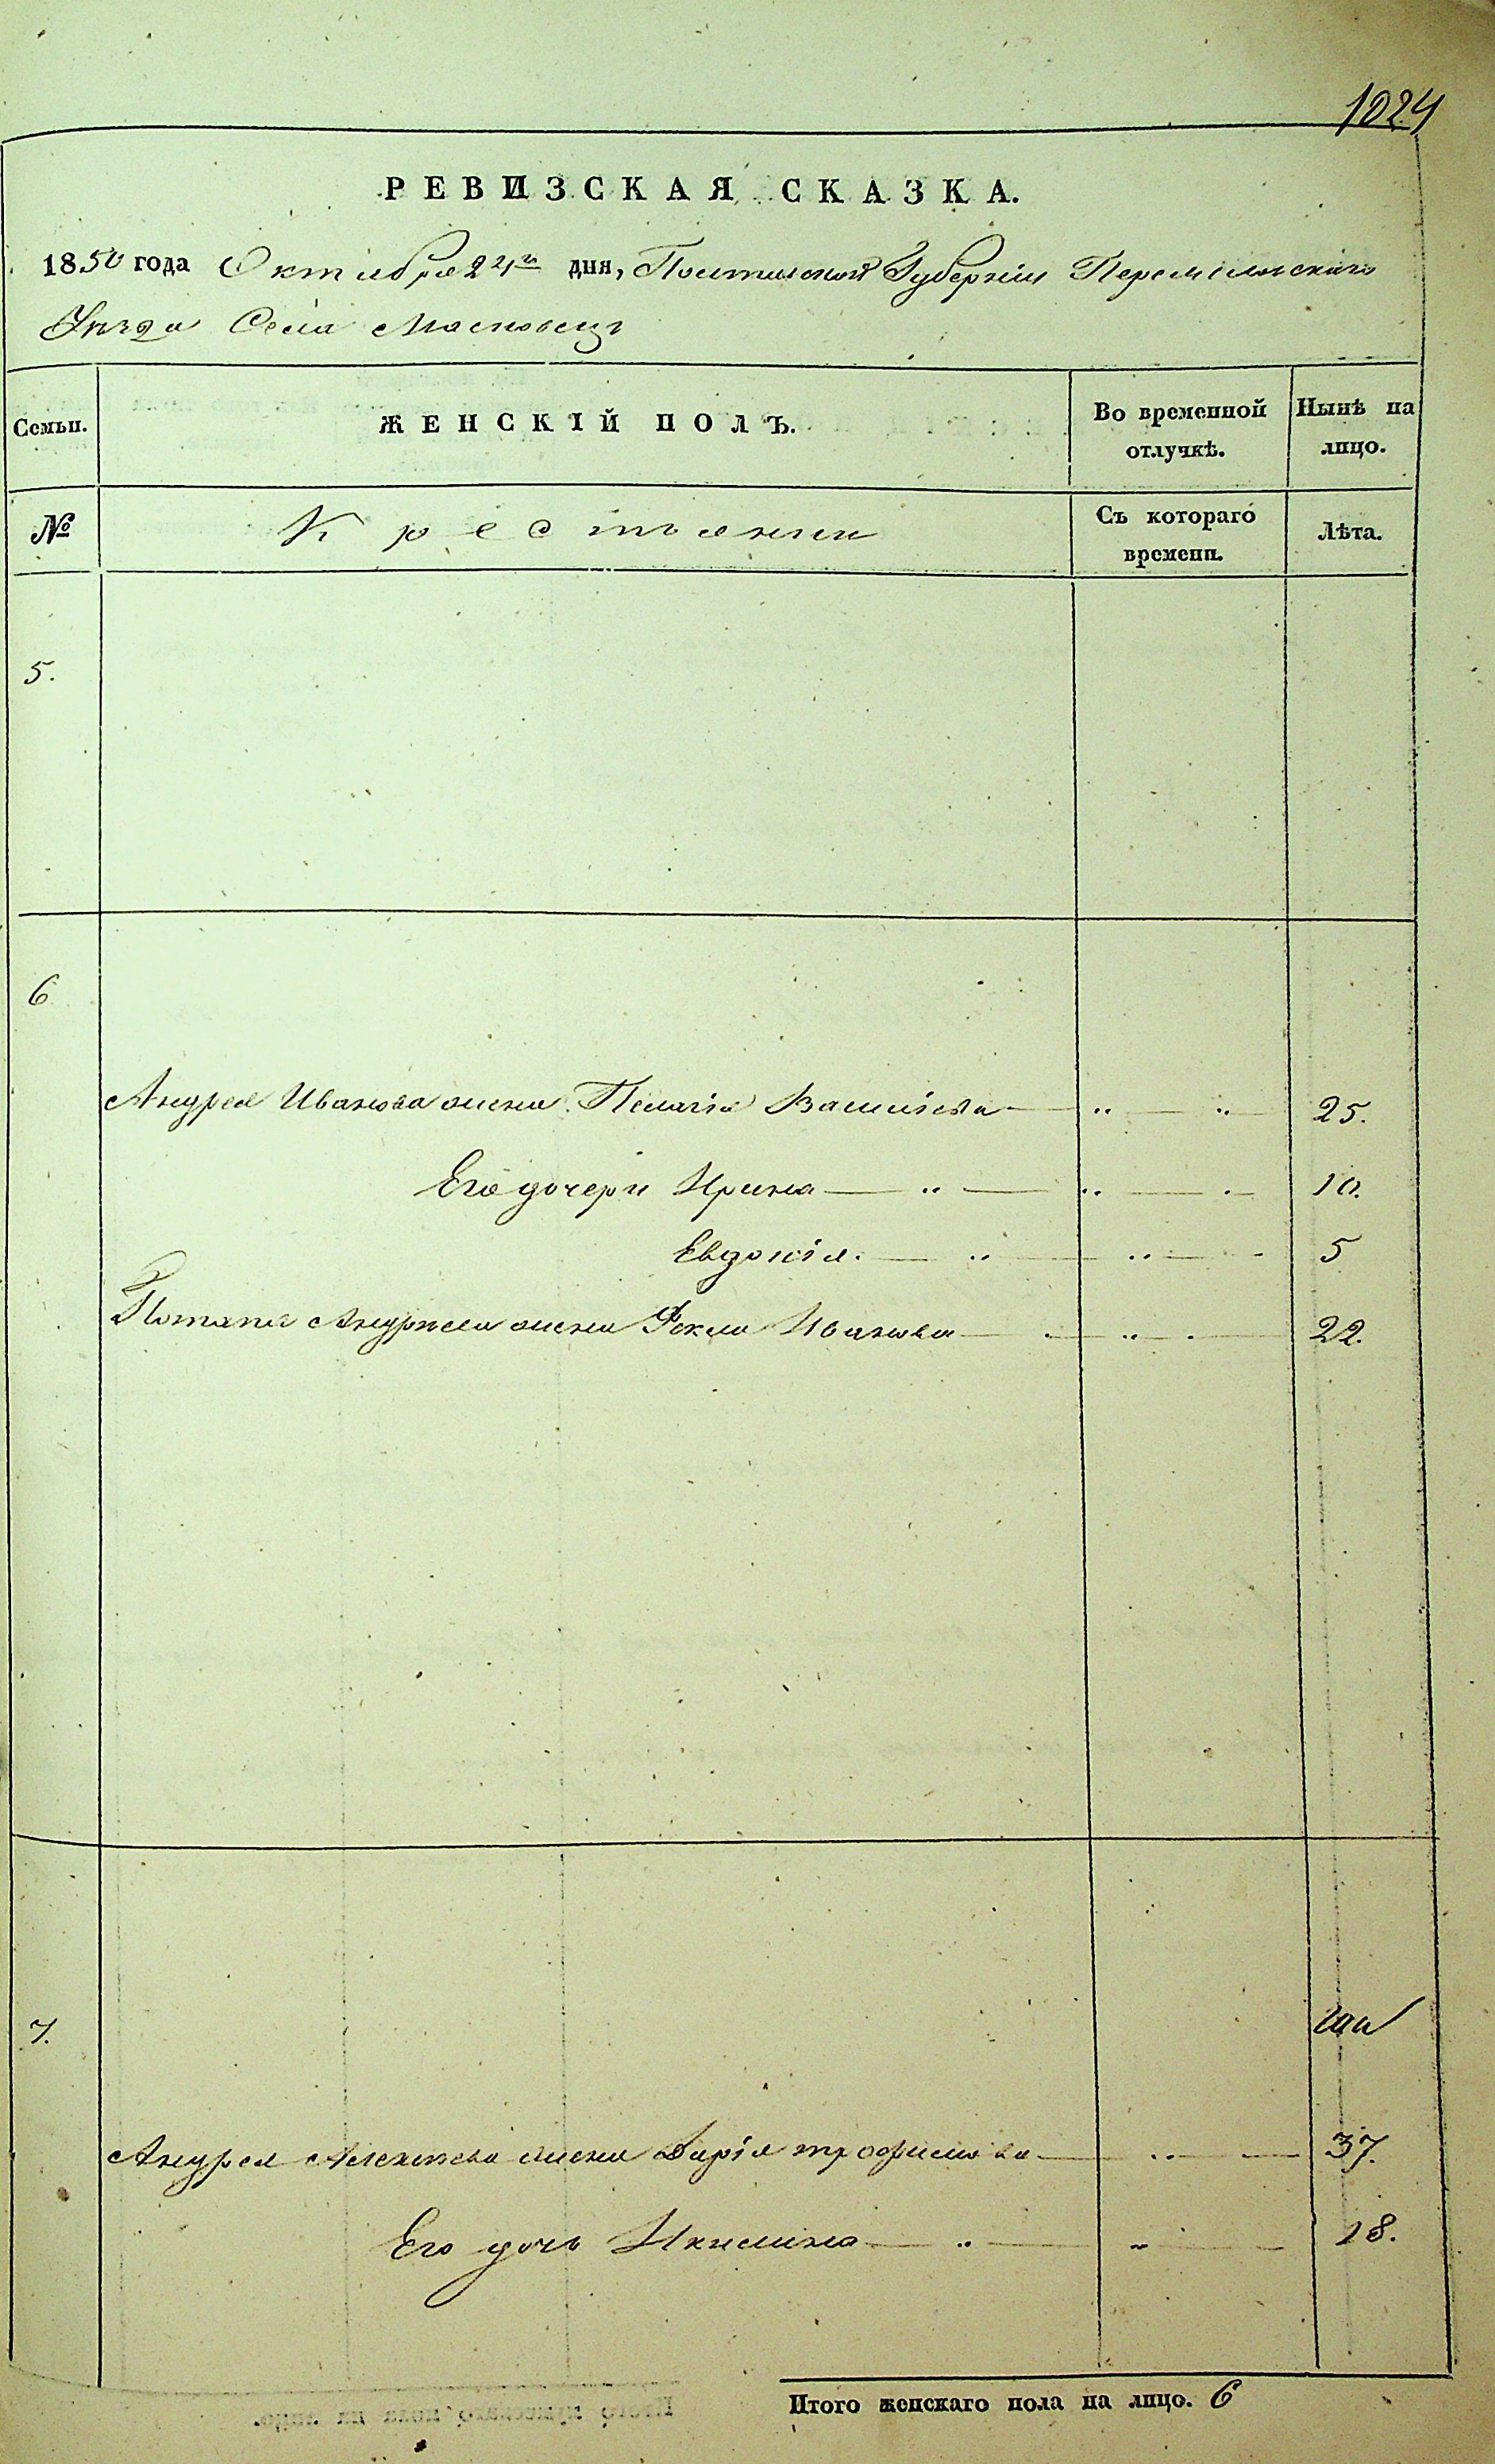 1024
РЕВИЗСКАЯ СКАЗКА.
1850 года Октября 24го дня, Полтавской Губерніи Переяславскаго
Уѣзда Села Масковецъ
Семьи. ЖЕНСКІЙ ПОЛЪ. Во временной отлучкѣ. Нынѣ на лицо.
№ Крестьянки Съ котораго времени. Лѣта.
5.
6
Андрея Иванова жена Пелагія Васильева 25.
Его дочери Ирина 10.
Евдокія. 5
Потапа Андреева жена Фекла Иванова 22.
7.
Андрея Алексѣева жена Дарія Трофимова 37.
Его дочь Якилина 18.
Итого женскаго пола на лицо. 6